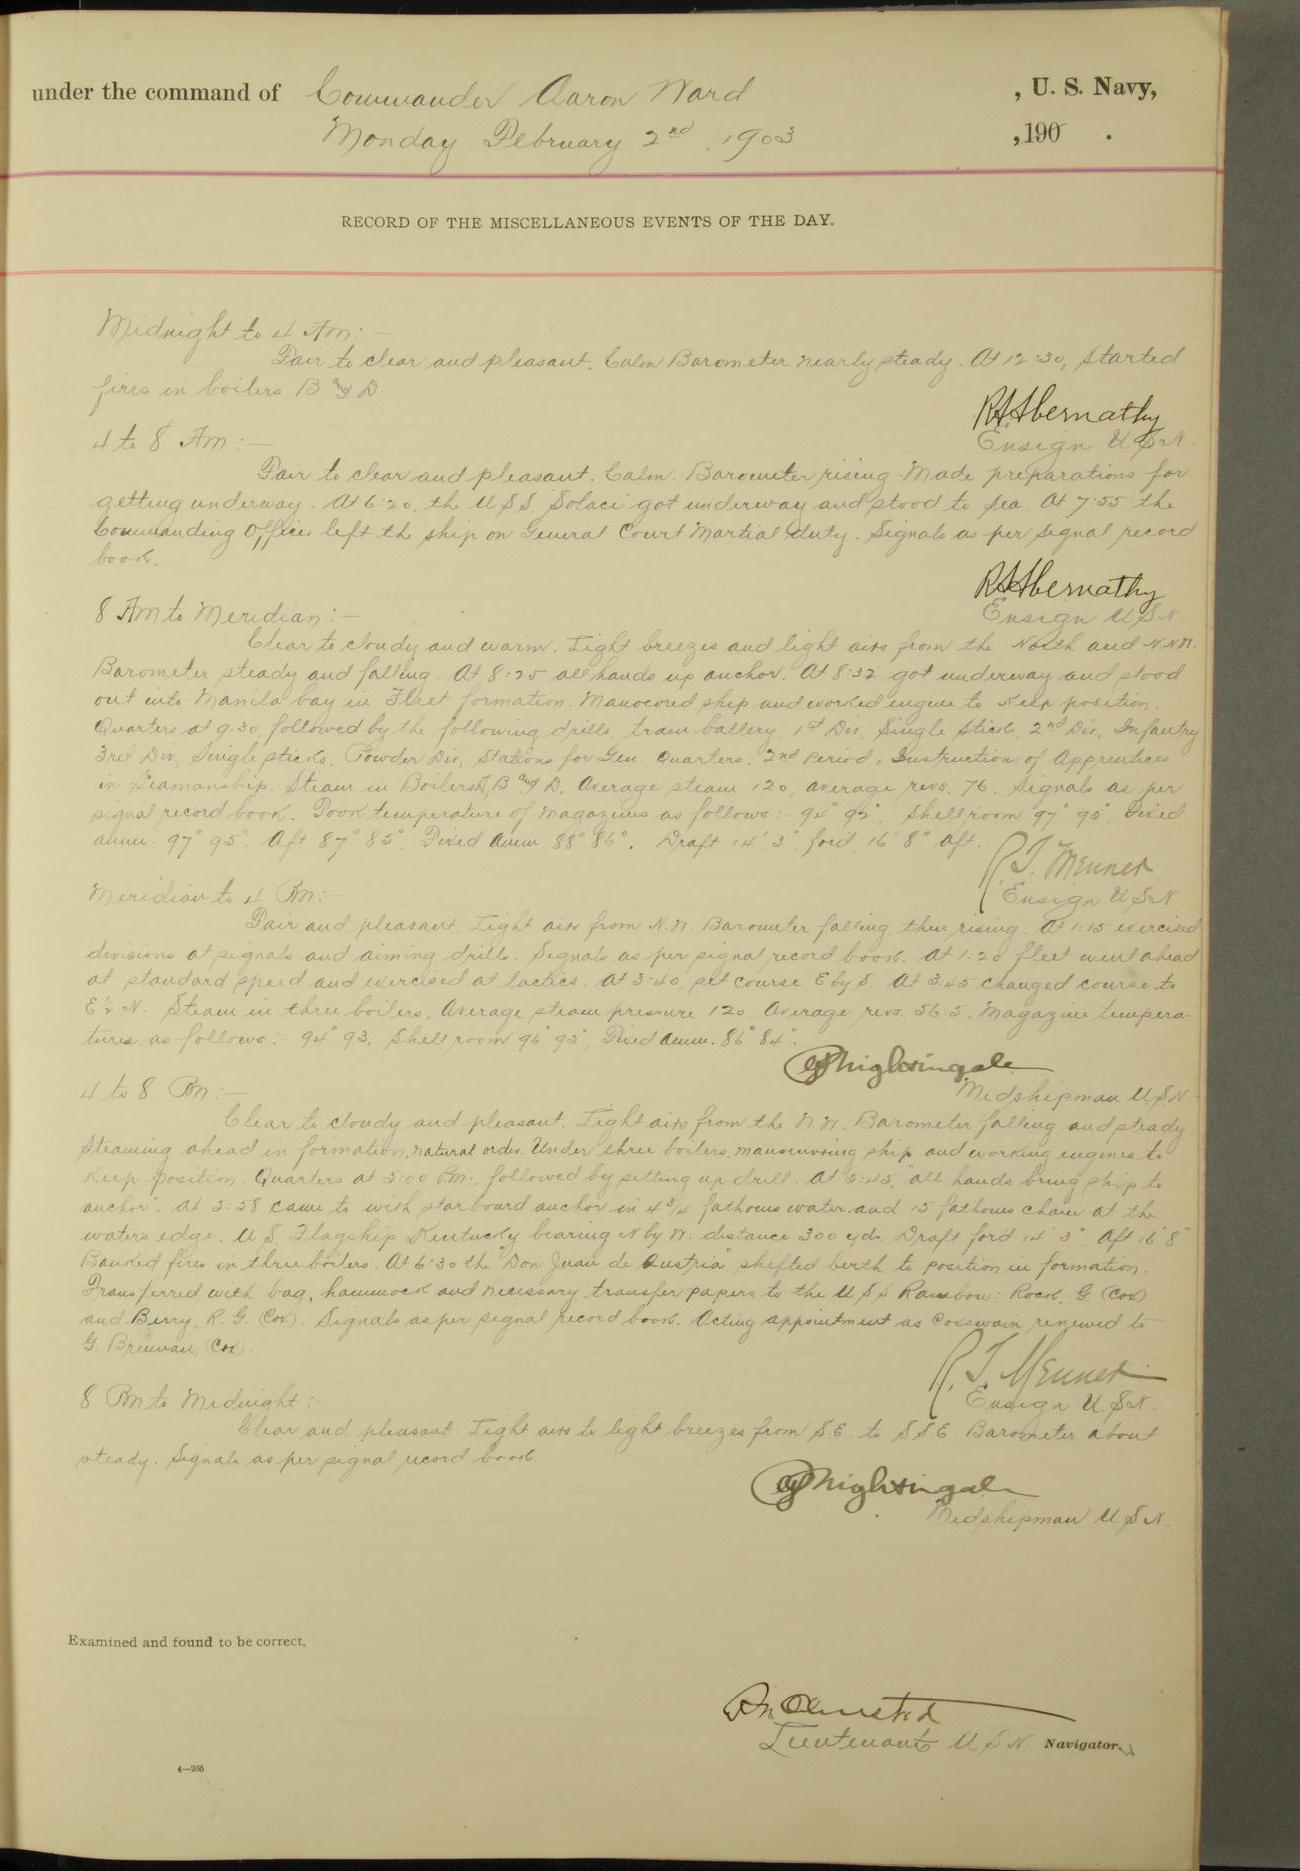 under the command of Commander Aaron Ward , U. S. Navy,
Monday February 2nd, 1903 , 190 .
RECORD OF THE MISCELLANEOUS EVENTS OF THE DAY.
Midnight to 4 Am:—
Fair to clear and pleasant. Calm Barometer nearly steady. At 12:30, started
fires in boilers B and D.
R.S. Abernathy
Ensign U S N.
4 to 8 Am:—
Fair to clear and pleasant. Calm. Barometer rising. Made preparations for
getting underway. At 6:20, the U S S. Solace got underway and stood to sea. At 7:55 the
Commanding Officer left the ship on General Court Martial duty. Signals as per signal record
book.
R.S. Abernathy
Ensign U S N.
8 Am to Meridian:—
Clear to cloudy and warm. Light breezes and light airs from the North and N.N.W.
Barometer steady and falling. At 8:25 all hands up anchor. At 8:32 got underway and stood
out into Manila bay in Fleet formation. Manoevred ship and worked engine to keep position.
Quarters at 9.30, followed by the following drills, train battery, 1st Div, Single Stick, 2nd Div, Infantry
3rd Div, Single sticks, Powder Div, Stations for Gen Quarters. 2nd Period, Instructions of Apprentices
in Seamanship. Steam in Boilers A, B and D, Average steam 120, average revs. 76. Signals as per
signal record book. Took temperature of Magazines as follows:- 94° 92°, Shell room 97° 95°, Fixed
amm. 97° 95°. Aft 87° 85°, Fixed Amm. 88° 86°. Draft 14' 3" ford, 16' 8" aft.
R. T. Menner
Ensign U S N.
Meridian to 4 Pm:—
Fair and pleasant. Light airs from N.W. Barometer falling, then rising. At 1:15 exercised
divisions at signals and aiming drills. Signals as per signal record book. At 1:20 fleet went ahead
at standard speed and exercised at tactics. At 3:40, set course E by S. At 3:45 changed course to
E ½ N. Steam in three boilers. Average steam pressure 120. Average revs. 56.5. Magazine tempera-
tures as follows:- 94° 93. Shell room 96° 95°, Fixed amm. 86° 84°.
Nightingale
Midshipman U S N.
4 to 8 Pm:—
Clear to cloudy and pleasant. Light airs from the N.W. Barometer falling and steady
Steaming ahead in formation, natural order. Under three boilers, manoeuvring ship and working engines to
keep position. Quarters at 5:00 P.m., followed by setting up drill. At 5:45, "all hands bring ship to
anchor". At 5:58 came to with starboard anchor in 4 3/4 fathoms water and 15 fathoms chain at the
waters edge. U. S. Flagship Kentucky bearing N by W. distance 300 yds. Draft ford 14' 3" Aft 16' 8"
Banked fires in three boilers. At 6:30 the "Don Juan de Austria" shifted berth to position in formation.
Transferred with bag, hammock and necessary transfer papers to the U S S Rainbow: Rock, G. (Cox)
and Berry, R. G. (Cox). Signals as per signal record book. Acting appointment as Coxswain renewed to
G. Brennan, (Cox).
R. T. Menner
Ensign U S N.
8 Pm to Midnight:
Clear and pleasant. Light airs to light breezes from S.E. to S S E Barometer about
steady. Signals as per signal record book.
Nightingale
Midshipman U S N.
Examined and found to be correct.
Olmsted
Lieutenant U S N. Navigator.
4—205